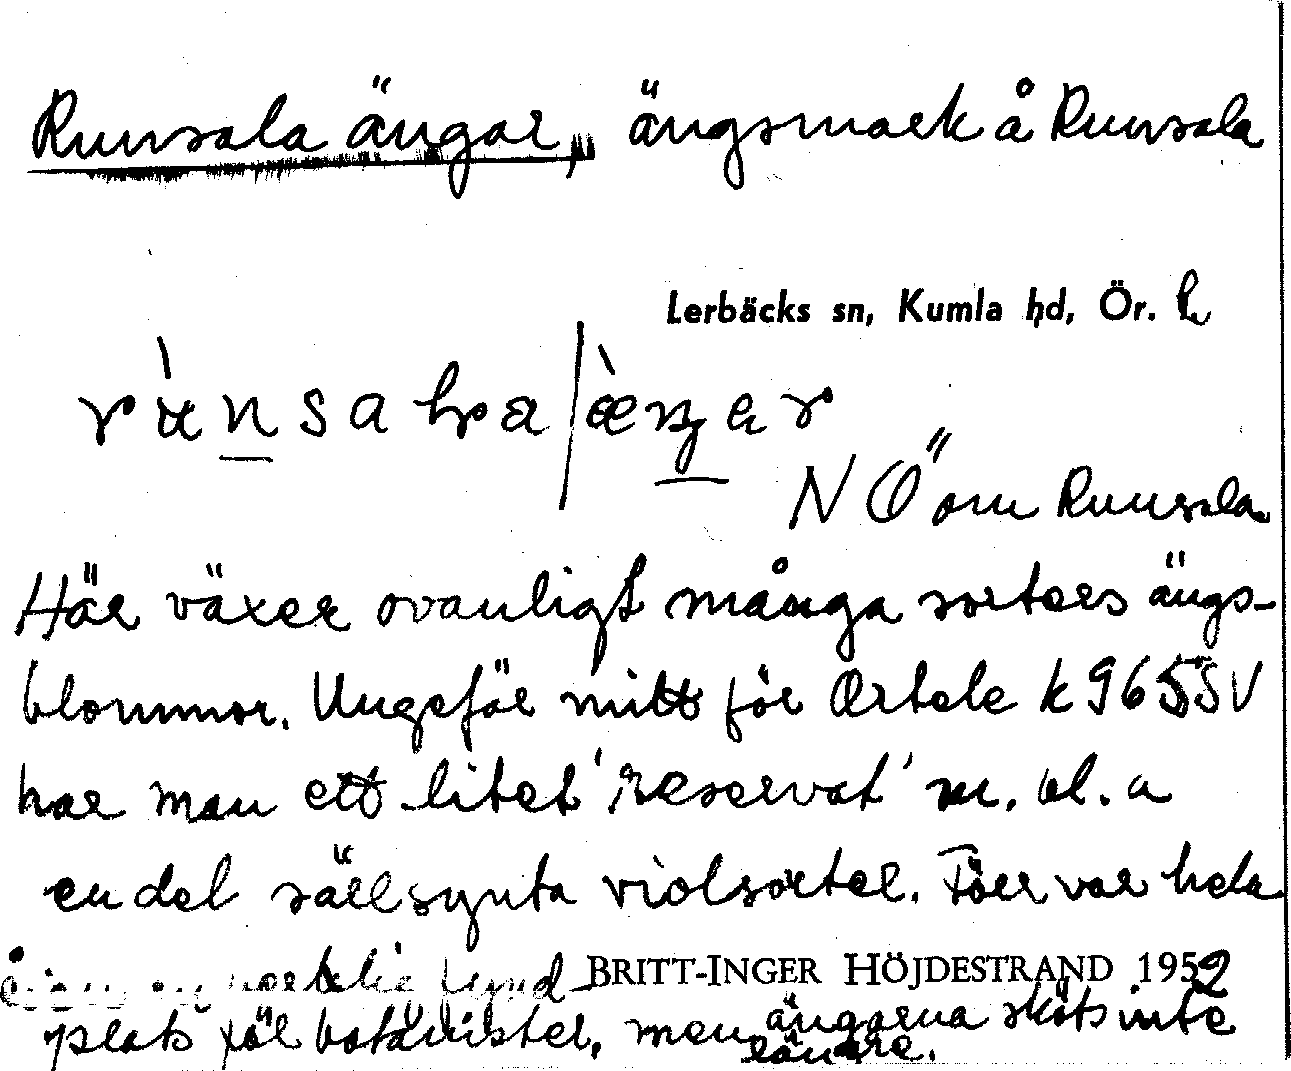 Runsala ängar, ängsmark å Runsala
Lerbäcks sn, Kumla hd, Ör. l
NÖ om Runsala.
Här växer ovanligt många sorters ängs-
blommor. Ungefär mitt för Örtele k 965 SV
har man ett litet 'reservat' m. bl. a
en del sällsynta violsorter. Förr var hela
fynd-
BRITT-INGER HÖJDESTRAND 1952
plats för botanister, men ängarna sköts inte
längre.